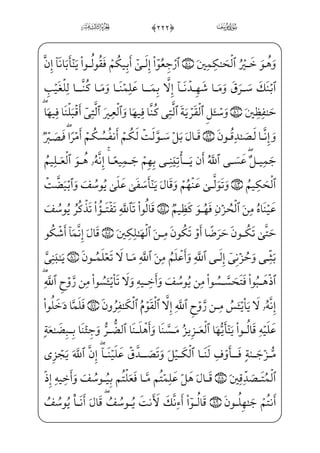 سورة يوسف ﴿٢٢٢﴾
وَهُوَ خَيْرُ ٱلْحَٰكِمِينَ ﴿٨٠﴾ ٱرْجِعُوٓا۟ إِلَىٰٓ أَبِيكُمْ فَقُولُوا۟ يَٰٓأَبَانَآ إِنَّ
ٱبْنَكَ سَرَقَ وَمَا شَهِدْنَآ إِلَّا بِمَا عَلِمْنَا وَمَا كُنَّا لِلْغَيْبِ
حَٰفِظِينَ ﴿٨١﴾ وَسْـَٔلِ ٱلْقَرْيَةَ ٱلَّتِى كُنَّا فِيهَا وَٱلْعِيرَ ٱلَّتِىٓ أَقْبَلْنَا فِيهَا ۖ
وَإِنَّا لَصَٰدِقُونَ ﴿٨٢﴾ قَالَ بَلْ سَوَّلَتْ لَكُمْ أَنفُسُكُمْ أَمْرًا ۖ فَصَبْرٌ
جَمِيلٌ ۖ عَسَى ٱللَّهُ أَن يَأْتِيَنِى بِهِمْ جَمِيعًا ۚ إِنَّهُۥ هُوَ ٱلْعَلِيمُ
ٱلْحَكِيمُ ﴿٨٣﴾ وَتَوَلَّىٰ عَنْهُمْ وَقَالَ يَٰٓأَسَفَىٰ عَلَىٰ يُوسُفَ وَٱبْيَضَّتْ
عَيْنَاهُ مِنَ ٱلْحُزْنِ فَهُوَ كَظِيمٌ ﴿٨٤﴾ قَالُوا۟ تَٱللَّهِ تَفْتَؤُا۟ تَذْكُرُ يُوسُفَ
حَتَّىٰ تَكُونَ حَرَضًا أَوْ تَكُونَ مِنَ ٱلْهَٰلِكِينَ ﴿٨٥﴾ قَالَ إِنَّمَآ أَشْكُوا۟
بَثِّى وَحُزْنِىٓ إِلَى ٱللَّهِ وَأَعْلَمُ مِنَ ٱللَّهِ مَا لَا تَعْلَمُونَ ﴿٨٦﴾ يَٰبَنِىَّ
ٱذْهَبُوا۟ فَتَحَسَّسُوا۟ مِن يُوسُفَ وَأَخِيهِ وَلَا تَا۟يْـَٔسُوا۟ مِن رَّوْحِ ٱللَّهِ ۖ
إِنَّهُۥ لَا يَا۟يْـَٔسُ مِن رَّوْحِ ٱللَّهِ إِلَّا ٱلْقَوْمُ ٱلْكَٰفِرُونَ ﴿٨٧﴾ فَلَمَّا دَخَلُوا۟
عَلَيْهِ قَالُوا۟ يَٰٓأَيُّهَا ٱلْعَزِيزُ مَسَّنَا وَأَهْلَنَا ٱلضُّرُّ وَجِئْنَا بِبِضَٰعَةٍ
مُّزْجَىٰةٍ فَأَوْفِ لَنَا ٱلْكَيْلَ وَتَصَدَّقْ عَلَيْنَآ ۖ إِنَّ ٱللَّهَ يَجْزِى
ٱلْمُتَصَدِّقِينَ ﴿٨٨﴾ قَالَ هَلْ عَلِمْتُم مَّا فَعَلْتُم بِيُوسُفَ وَأَخِيهِ إِذْ
أَنتُمْ جَٰهِلُونَ ﴿٨٩﴾ قَالُوٓا۟ أَءِنَّكَ لَأَنتَ يُوسُفُ ۖ قَالَ أَنَا۠ يُوسُفُ